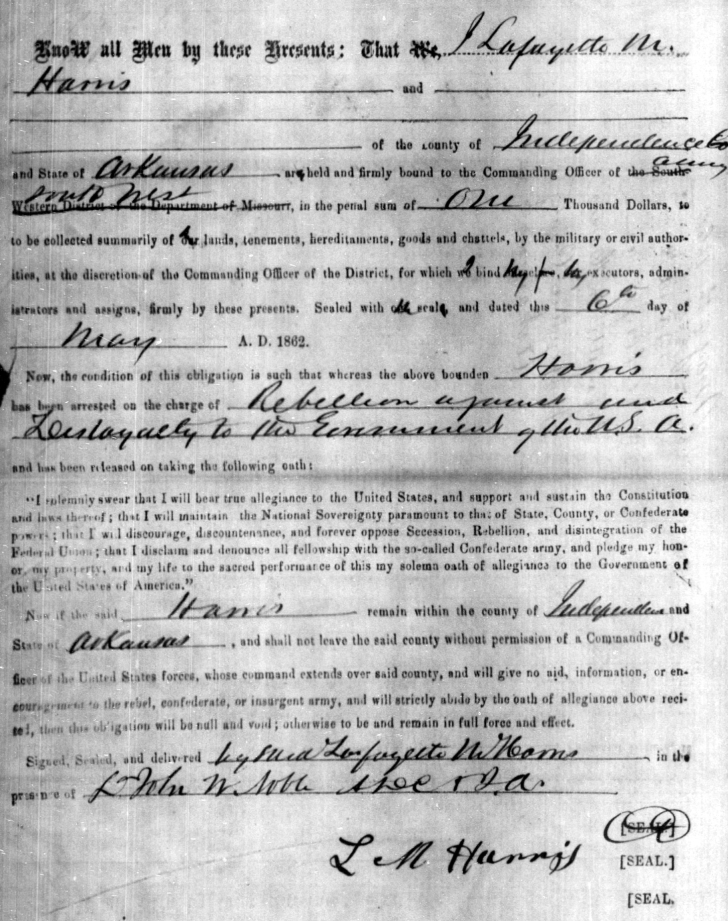 Know all Men by these Presents: That We, I Lafayette M.
Harris and
of the county of Independence Co
and State of Arkansas are held and firmly bound to the Commanding Officer of the South Army
South West
Western District of the Department of Missouri, in the penal sum of One Thousand Dollars, to
to be collected summarily of our lands, tenements, hereditaments, goods and chattels, by the military or civil author-
ities, at the discretion of the Commanding Officer of the District, for which we I bind my executors, admin-
istrators and assigns, firmly by these presents. Sealed with seals, and dated this 6th day of
May A. D. 1862.
Now, the condition of this obligation is such that whereas the above bounden Harris
has been arrested on the charge of Rebellion against and
Disloyalty to the Government of the U.S. A.
and has been released on taking the following oath:
"I solemnly swear that I will bear true allegiance to the United States, and support and sustain the Constitution
and laws thereof; that I will maintain the National Sovereignty paramount to that of State, County, or Confederate
powers; that I will discourage, discountenance, and forever oppose Secession, Rebellion, and disintegration of the
Federal Union; that I disclaim and denounce all fellowship with the so-called Confederate army, and pledge my hon-
or, my property, and my life to the sacred performance of this my solemn oath of allegiance to the Government of
the United States of America."
Now if the said Harris remain within the county of Independen and
State of Arkansas, and shall not leave the said county without permission of a Commanding Of-
ficer of the United States forces, whose command extends over said county, and will give no aid, information, or en-
couragement to the rebel, confederate, or insurgent army, and will strictly abide by the oath of allegiance above reci-
ted, then this obligation will be null and void; otherwise to be and remain in full force and effect.
Signed, Sealed, and delivered by said Lafayette M Harris in the
presence of Lt John W. Noble
[SEAL.]
L M Harris [SEAL.]
[SEAL.